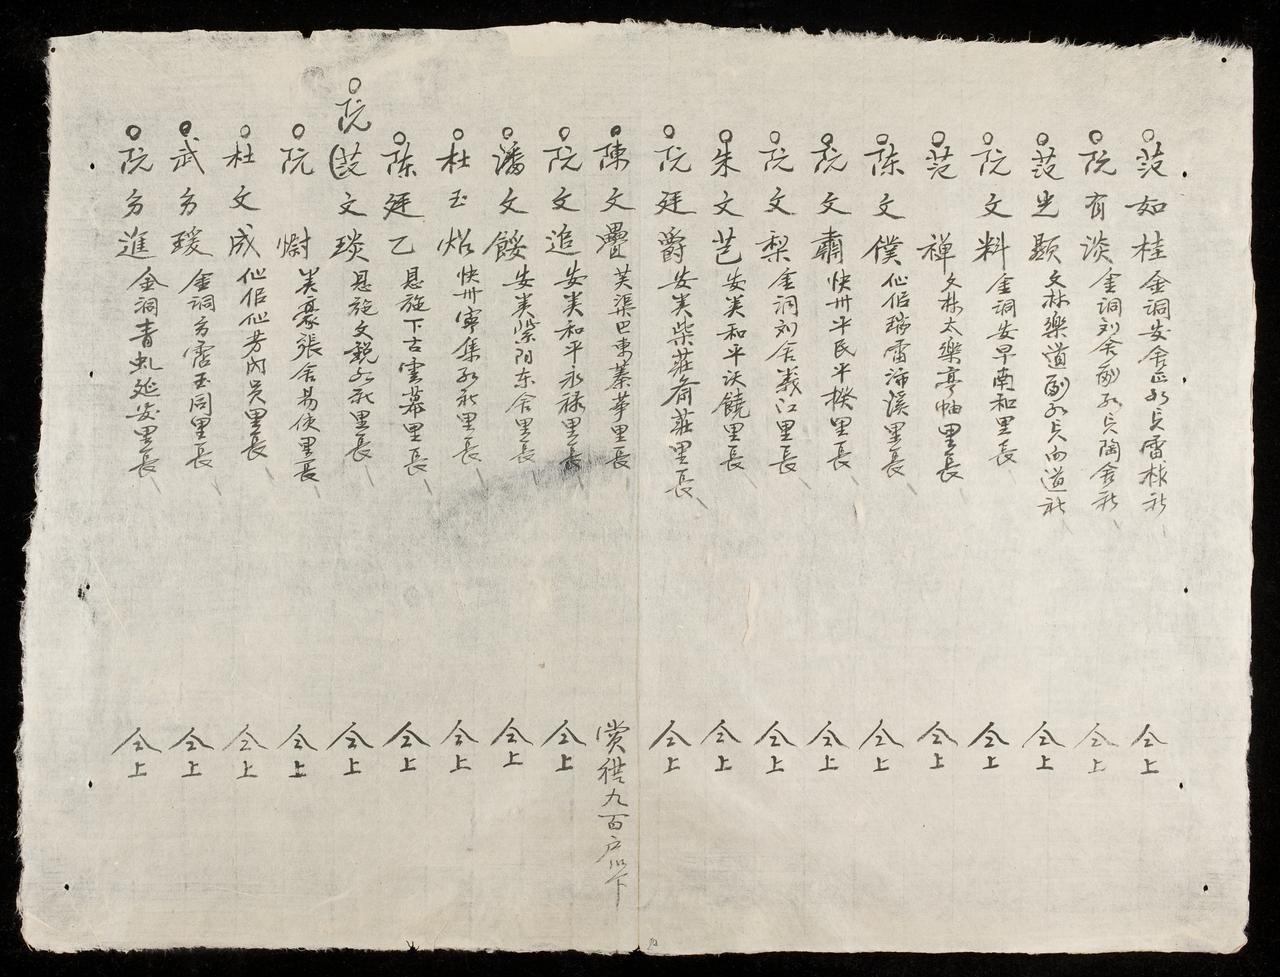 范如桂 金洞安舍正社長雷林社 仝上
阮有淡 金洞刘舍副社長陶舍社 仝上
范光顯 文林樂道副社長向道社 仝上
阮文料 金洞安早南和里長 仝上
范禅 文林太樂亭岫里長 仝上
陈文僕 仙侣瑞雷沛溪里長 仝上
阮文肅 快州平民平揆里長 仝上
阮文梨 金洞刘舍義江里長 仝上
朱文芑 安美和平沃饒里長 仝上
阮廷爵 安美柴莊俞莊里長 仝上
陳文疊 芙渠巴東蓁華里長 賞 九百户以下
阮文追 安美和平永禄里長 仝上
潘文餒 安美紫阳东舍里長 仝上
杜玉炤 快州寧集社里長 仝上
陈廷乙 恩施下古雲幕里長 仝上
阮范文琰 恩施文銳社里長 仝上
阮㷉 美豪張舍易使里長 仝上
杜文成 仙侣仙芳内光里長 仝上
武方瑗 金洞方霑玉同里長 仝上
阮方進 金洞青虬延安里長 仝上